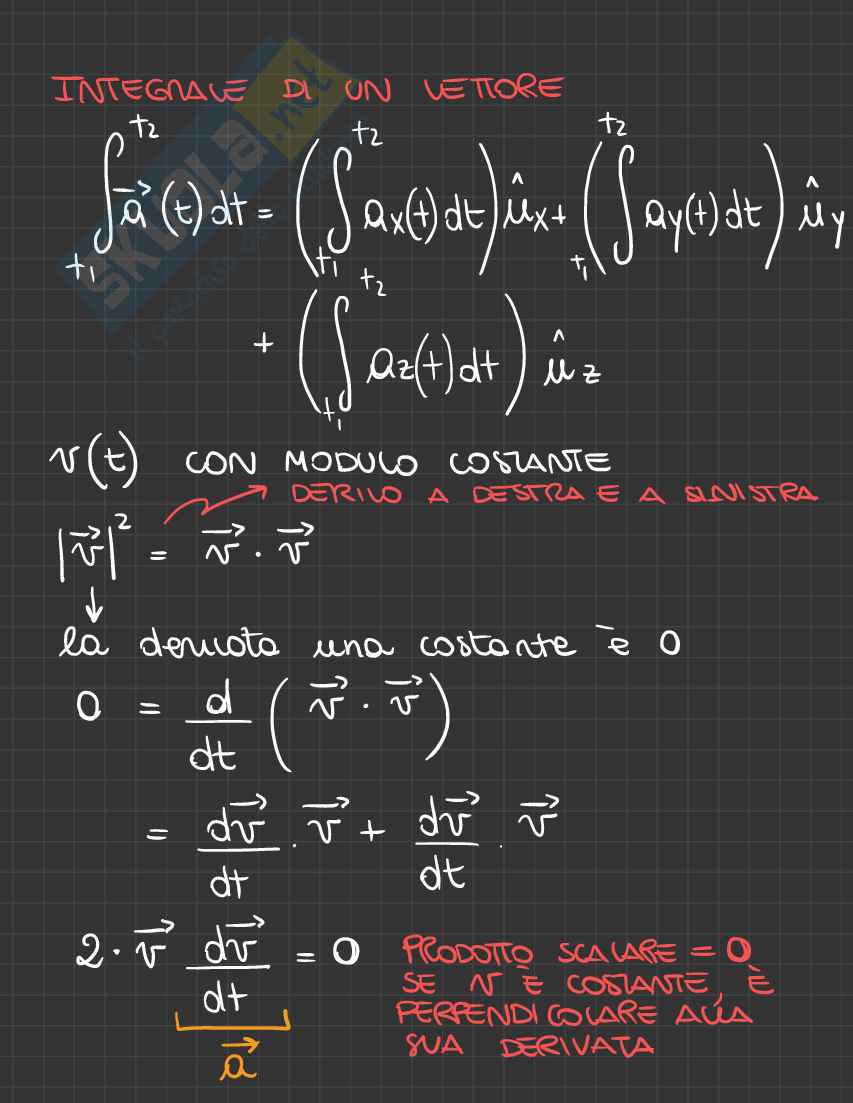 INTEGRALE DI UN VETTORE
∫_{t1}^{t2} a⃗(t)dt = (∫_{t1}^{t2} ax(t)dt) ûx + (∫_{t1}^{t2} ay(t)dt) ûy
+ (∫_{t1}^{t2} az(t)dt) ûz
v(t) CON MODULO COSTANTE
DERIVO A DESTRA E A SINISTRA
|v⃗|² = v⃗ · v⃗
↓
la derivata una costante è 0
0 = d/dt (v⃗ · v⃗)
= dv⃗/dt · v⃗ + dv⃗/dt · v⃗
2 · v⃗ dv⃗/dt = 0
a⃗
PRODOTTO SCALARE = 0
SE v È COSTANTE, È
PERPENDICOLARE ALLA
SUA DERIVATA
SKUOLA.net